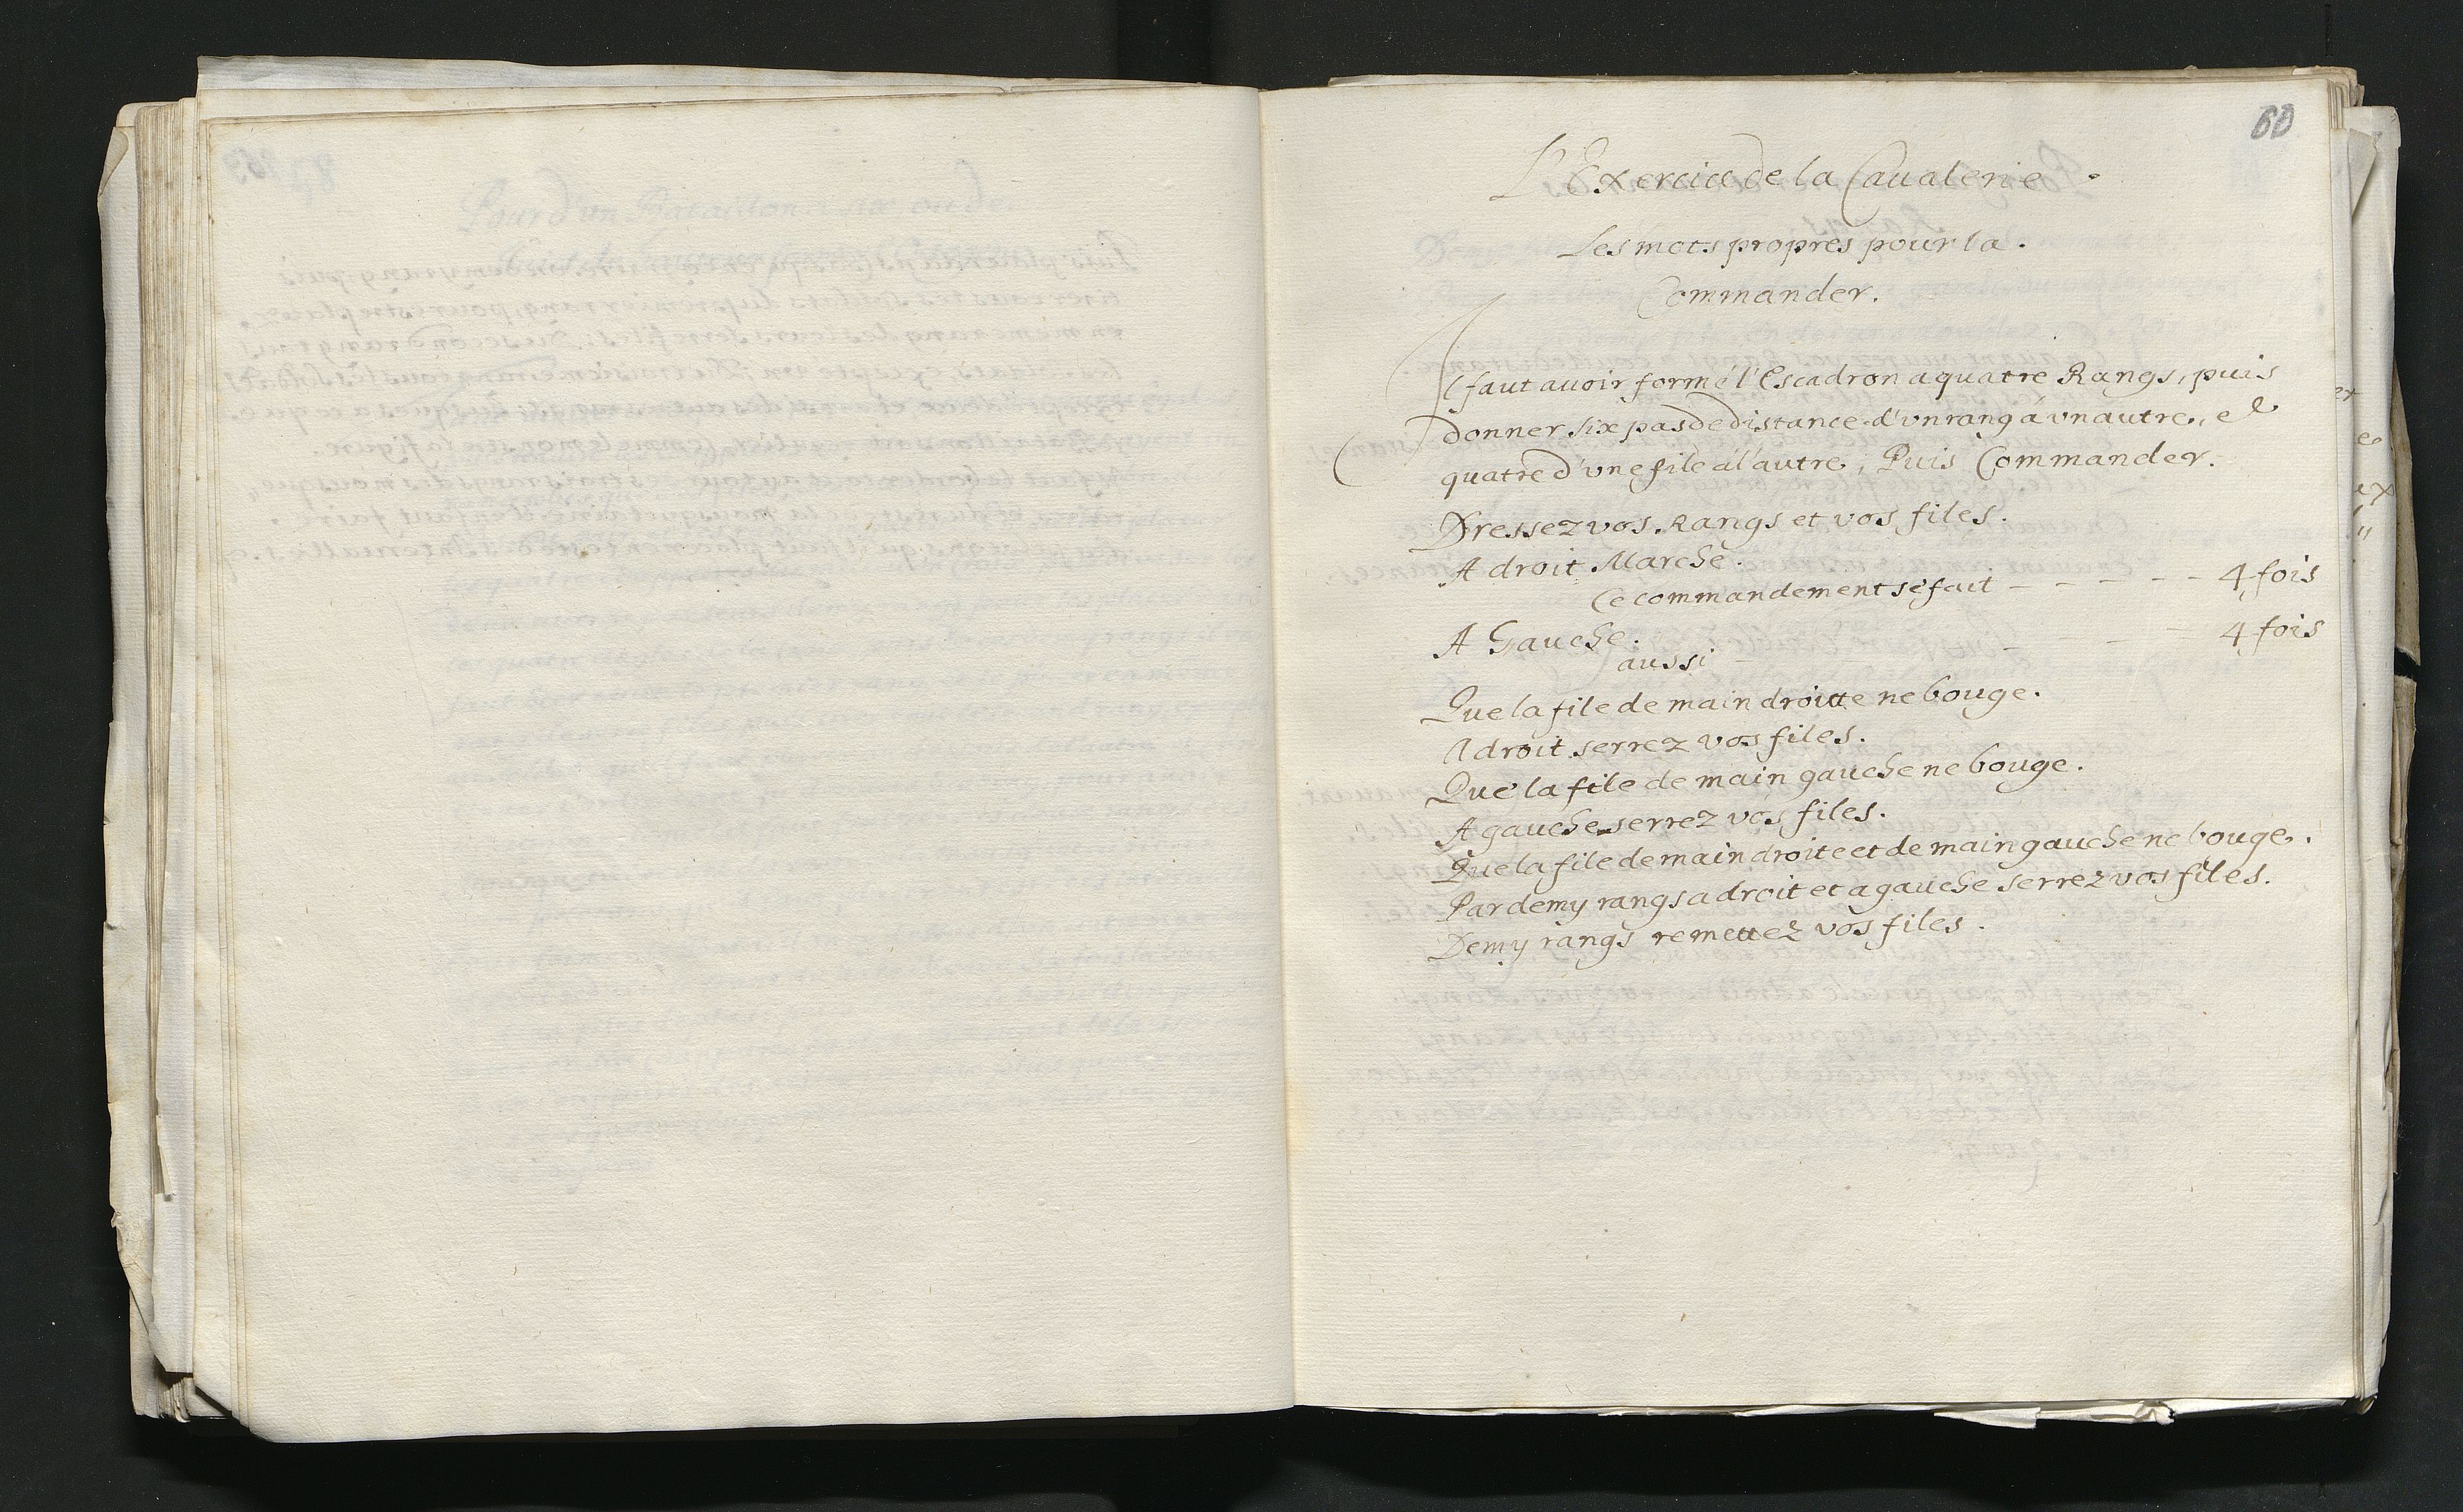 60
L'Exercice de la Caualerie.
Les mots propres pour la.
Commander.
Il faut auoir formé l'Escadron a quatre Rangs, puis
donner six pas de distance d'vn rang á vn autre, et
quatre d'vne file á l'autre; Puis Commander.
Dressez vos Rangs et vos files.
A droit Marche.
Ce commandement se fait - - - - - 4 fois
A Gauche.
aussi - - - - 4 fois
Que la file de main droitte ne bouge.
A droit serrez vos files.
Que la file de main gauche ne bouge.
A gauche serrez vos files.
Que la file de main droite et de main gauche ne bouge.
Par demy rangs a droit et a gauche serrez vos files.
Demy rangs remettez vos files.